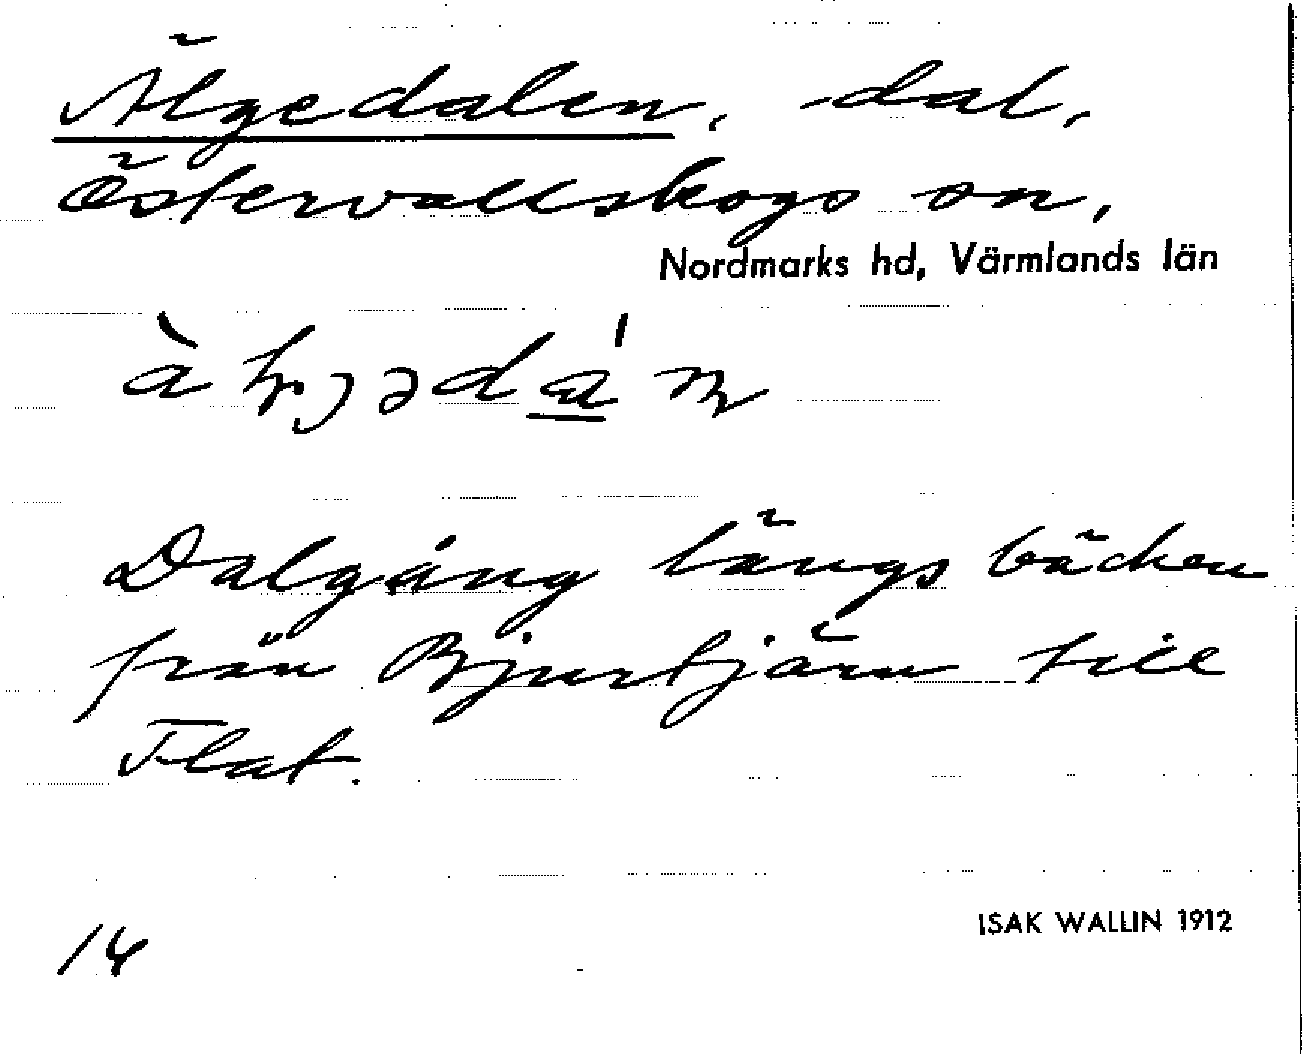 Älgedalen, dal,
Östervallskogs sn,
Nordmarks hd, Värmlands län
Dalgång längs bäcken
från Bjurtjärn till
Flat.
14
ISAK WALLIN 1912